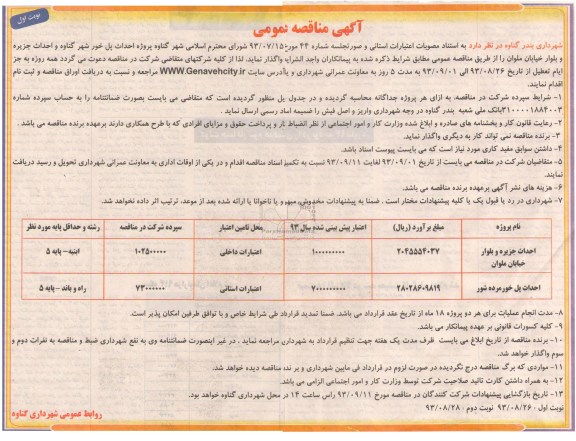 نوبت اول
آگهی مناقصه عمومی
شهرداری بندر گناوه در نظر دارد به استناد مصوبات اعتبارات استانی و صورتجلسه شماره ۴۴ مورخ ۹۳/۰۷/۱۵ شورای محترم اسلامی شهر گناوه پروژه احداث پل خور شهر گناوه و احداث جزیره
و بلوار خیابان ملوان را از طریق مناقصه عمومی مطابق شرایط ذکر شده به پیمانکاران واجد الشرایط واگذار نماید. لذا از کلیه شرکتهای متقاضی شرکت در مناقصه دعوت می گردد همه روزه به جز
ایام تعطیل از تاریخ ۹۳/۰۸/۲۶ الی ۹۳/۰۹/۰۱ به مدت ۵ روز به معاونت عمرانی شهرداری و یاآدرس سایت WWW.Genavehcity.ir مراجعه و نسبت به دریافت اوراق مناقصه و ثبت نام
اقدام نمایند.
۱- شرایط سپرده شرکت در مناقصه به ازای هر پروژه جداگانه محاسبه گردیده و در جدول پل منظور گردیده است که متقاضی می بایست بصورت ضمانتنامه را به حساب سپرده شماره
۳۱۰۰۰۰۱۸۸۴۰۰۳بانک ملی شعبه بندر گناوه در وجه شهرداری واریز و اصل فیش را ضمیمه اسناد رسمی ارسال نماید .
۲- رعایت قانون کار و بخشنامه های صادره و ابلاغ شده وزارت کار و امور اجتماعی از نظر انضباط کار و پرداخت حقوق و مزایای افرادی که با طرح همکاری دارند برعهده برنده مناقصه می باشد .
۳- برنده مناقصه نمی تواند کار به دیگری واگذار نماید.
۴- داشتن سوابق مفید کاری مورد نیاز است که می بایست پیوست اسناد باشد.
۵- متقاضیان شرکت در مناقصه می بایست از تاریخ ۹۳/۰۹/۰۱ لغایت ۹۳/۰۹/۱۱ نسبت به تکمیل اسناد مناقصه اقدام و در یکی از اوقات اداری به معاونت عمرانی شهرداری تحویل و رسید دریافت
نمایند.
۶- هزینه های نشر آگهی برعهده برنده مناقصه می باشد.
۷- شهرداری در رد یا قبول یک یا کلیه پیشنهادات مختار است . ضمنا به پیشنهادات مخدوش، مبهم و یا ناخوانا یا ارائه شده بعد از موعد، ترتیب اثر داده نخواهد شد.
نام پروژه | مبلغ برآورد (ریال) | اعتبار پیش بینی شده سال ۹۳ | محل تامین اعتبار | سپرده شرکت در مناقصه | رشته و حداقل پایه مورد نظر
احداث جزیره و بلوار خیابان ملوان | ۲۰۴۵۵۵۴۰۳۷ | ۱۰۰۰۰۰۰۰۰۰ | اعتبارات داخلی | ۱۰۲۵۰۰۰۰۰ | ابنیه – پایه ۵
احداث پل خورمرده شور | ۲۸۰۲۸۶۰۹۸۱۹ | ۷۰۰۰۰۰۰۰۰۰ | اعتبارات استانی | ۷۳۰۰۰۰۰۰ | راه و باند – پایه ۵
۸- مدت انجام عملیات برای هر دو پروژه ۱۸ ماه از تاریخ عقد قرارداد می باشد. ضمنا تمدید قرارداد طی شرایط خاص و با توافق طرفین امکان پذیر است.
۹- کلیه کسورات قانونی بر عهده پیمانکار می باشد.
۱۰- برنده مناقصه از تاریخ ابلاغ می بایست ظرف مدت یک هفته جهت تنظیم قرارداد به شهرداری مراجعه نماید . در غیر اینصورت ضمانتنامه وی به نفع شهرداری ضبط و مناقصه به نفرات دوم و
سوم واگذار خواهد شد.
۱۱- مواردی که برگ مناقصه درج نگردیده در صورت لزوم در قرارداد فی مابین شهرداری و برنده مناقصه دیده خواهد شد.
۱۲- به همراه داشتن کارت تائید صلاحیت شرکت توسط وزارت کار و امور اجتماعی الزامی می باشد.
۱۳- تاریخ بازگشایی پیشنهادات شرکت کنندگان در مناقصه مورخ ۹۳/۰۹/۱۱ راس ساعت ۱۴ در محل شهرداری گناوه خواهد بود.
نوبت اول : ۹۳/۰۸/۲۶ نوبت دوم : ۹۳/۰۸/۲۸
روابط عمومی شهرداری گناوه